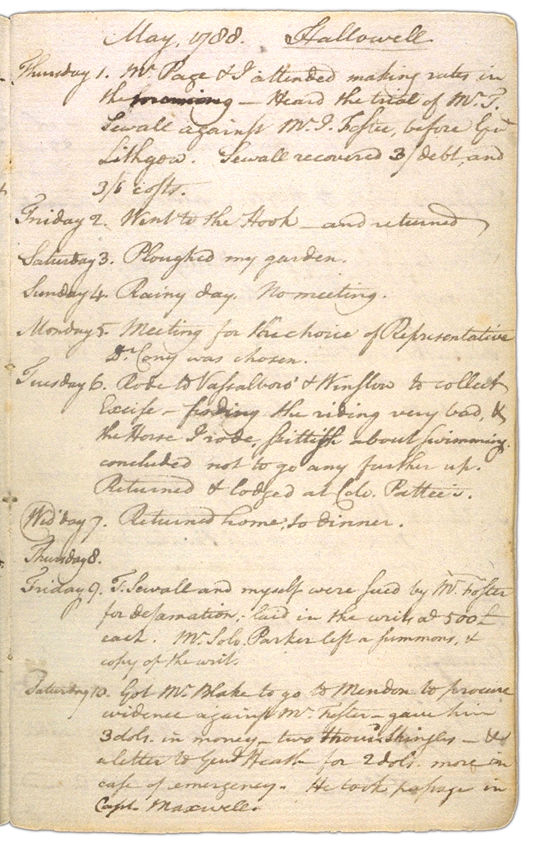 May, 1788. Hallowell
Thursday 1. Mr. Page & I attended making rates in
the forenoon — Heard the trial of Mr. T.
Sewall against Mr. I. Foster, before Genl
Lithgow. Sewall recovered 3/ debt, and
3/6 costs.
Friday 2. Went to the Hook — and returned
Saturday 3. Ploughed my garden.
Sunday 4. Rainy day. No meeting.
Monday 5. Meeting for the choice of Representative
Dr. Cony was chosen.
Tuesday 6. Rode to Vassalboro' & Winslow to collect
Excise — finding the riding very bad, &
the Horse I rode, skittish about swimming.
concluded not to go any further up.
Returned & lodged at Colo. Pattee's.
Wed'day 7. Returned home, to dinner.
Thursday 8.
Friday 9. T. Sewall and myself were sued by Mr. Foster
for defamation; laid in the writs at 500£
each. Mr. Solo. Parker left a summons, &
copy of the writ.
Saturday 10. Got Mr. Blake to go to Mendon to procure
evidence against Mr. Foster — gave him
3 dols. in money — two thous'd shingles — & a
a letter to Genl Heath for 2 dols. more on
case of emergency. He took passage in
Capt. Maxwell.